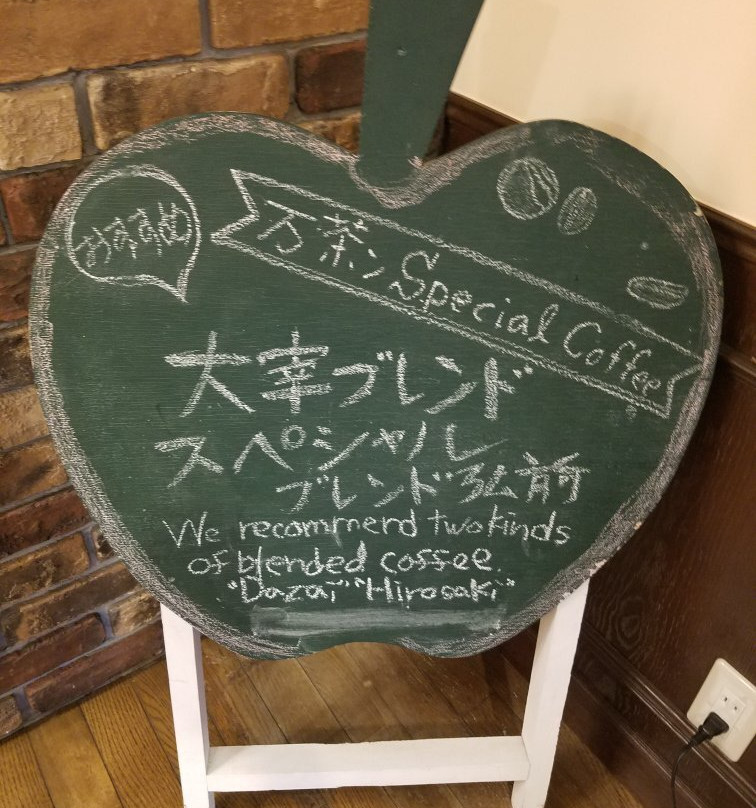 おすすめ
万茶ン Special Coffee
太宰ブレンド
スペシャル
ブレンド弘前
We recommend two kinds
of blended coffee.
"Dazai" "Hirosaki"